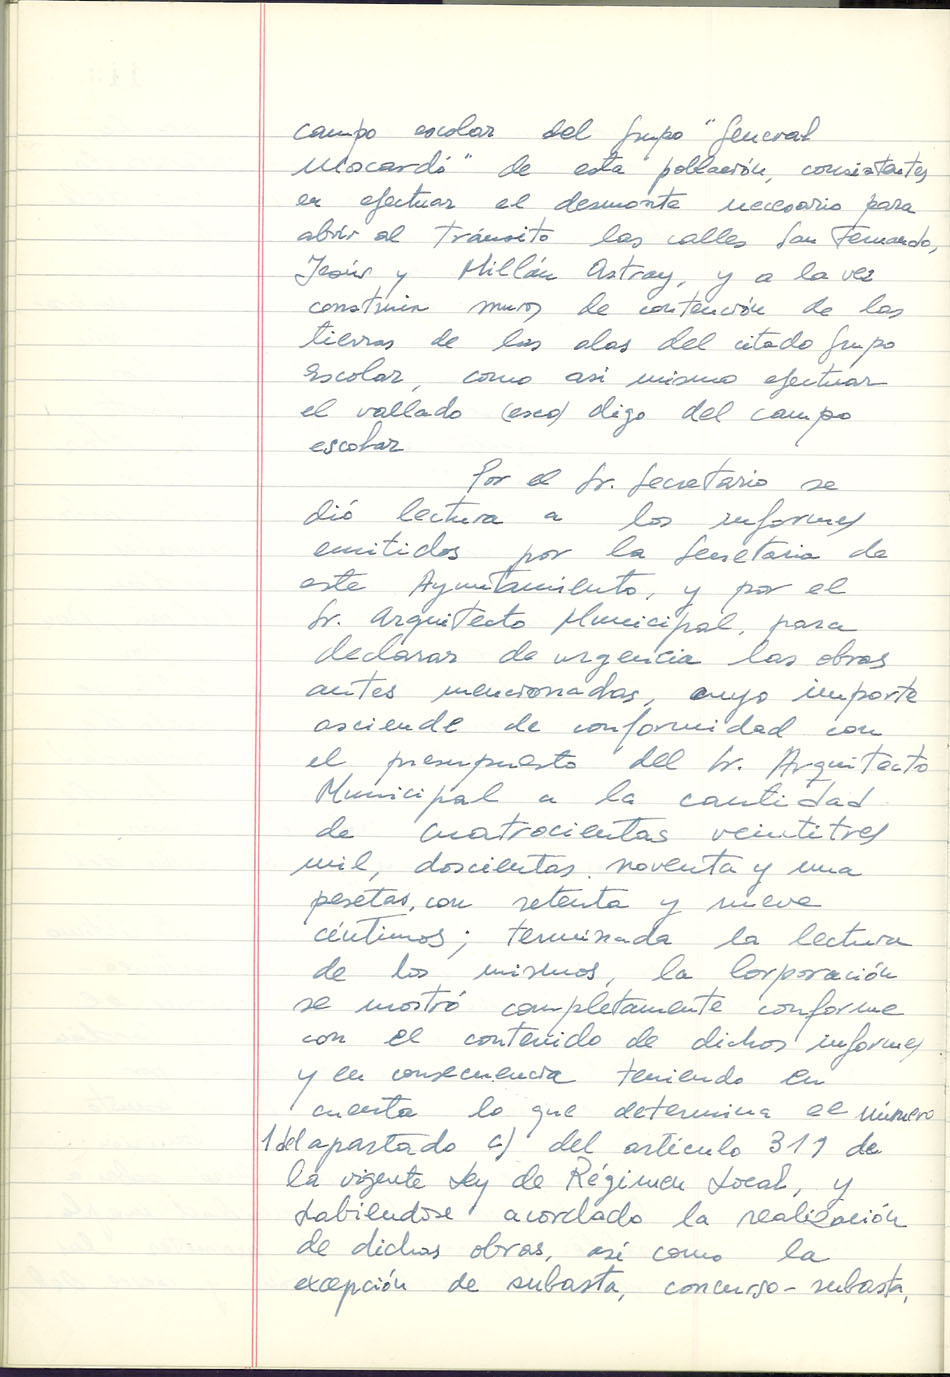 campo escolar del grupo "General
Moscardó" de esta población, consistentes
en efectuar el desmonte necesario para
abrir al tránsito las calles San Fernando,
Jesús y Millán Astray, y a la vez
construir muros de contención de las
tierras de las alas del citado grupo
escolar, como asi mismo efectuar
el vallado (esco) digo del campo
escolar
Por el Sr. Secretario se
dió lectura a los informes
emitidos por la Secretaria de
este Ayuntamiento, y por el
Sr. Arquitecto Municipal, para
declarar de urgencia las obras
antes mencionadas, cuyo importe
asciende de conformidad con
el presupuesto del Sr. Arquitecto
Municipal a la cantidad
de cuatrocientas veintitres
mil, doscientas noventa y una
pesetas, con setenta y nueve
céntimos; terminada la lectura
de los mismos, la Corporación
se mostró completamente conforme
con el contenido de dichos informes
y en consecuencia teniendo en
cuenta lo que determina el número
1 del apartado c) del artículo 311 de
la vigente Ley de Régimen Local, y
habiendose acordado la realización
de dichas obras, asi como la
excepción de subasta, concurso-subasta,